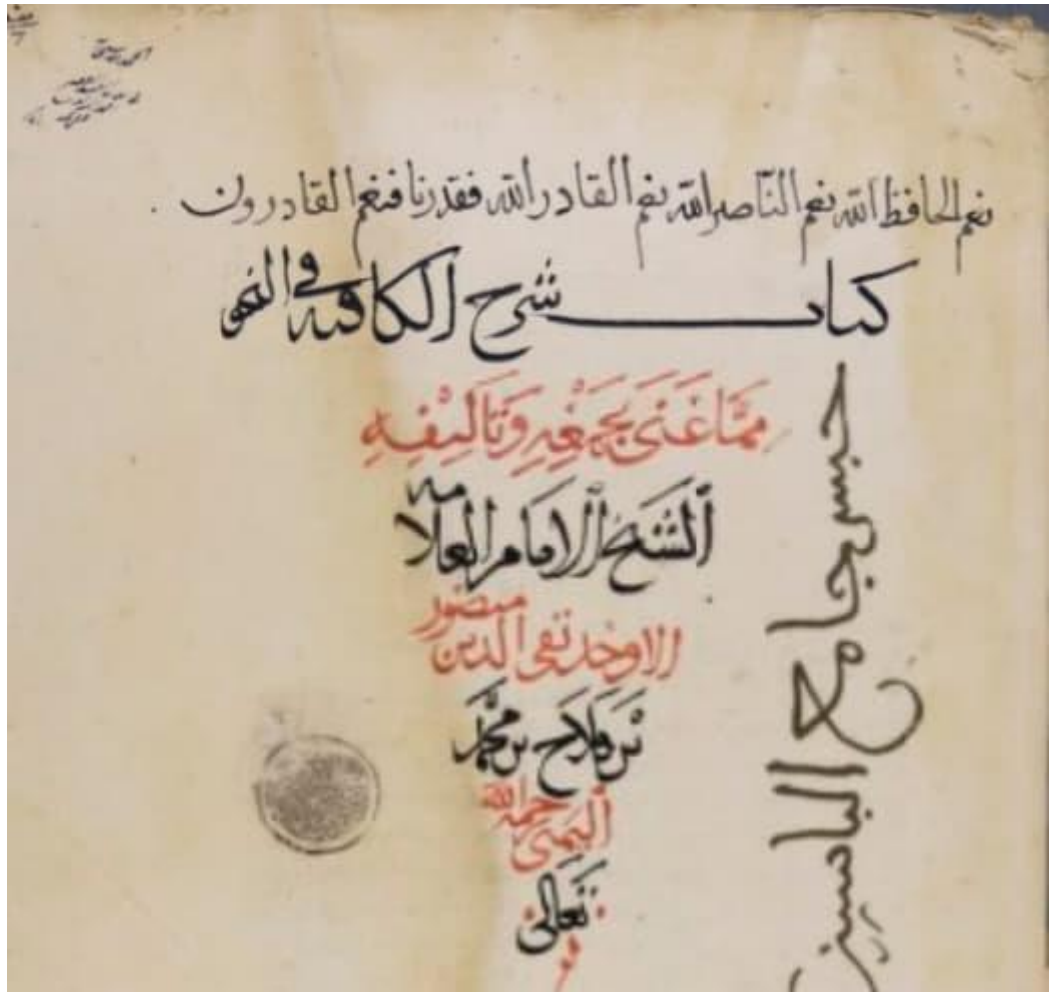 نعم الحافظ الله نعم الناصر الله نعم القادر الله فقدرنا فنعم القادرون
كتاب شرح الكافية في النحو
مما غنى بجمعه وتأليفه
الشيخ الامام العلامه
الاوحد تقي الدين منصور
بن فلاح بن محمد
اليمني رحمه الله
تعالى
حبس جامع الباسي